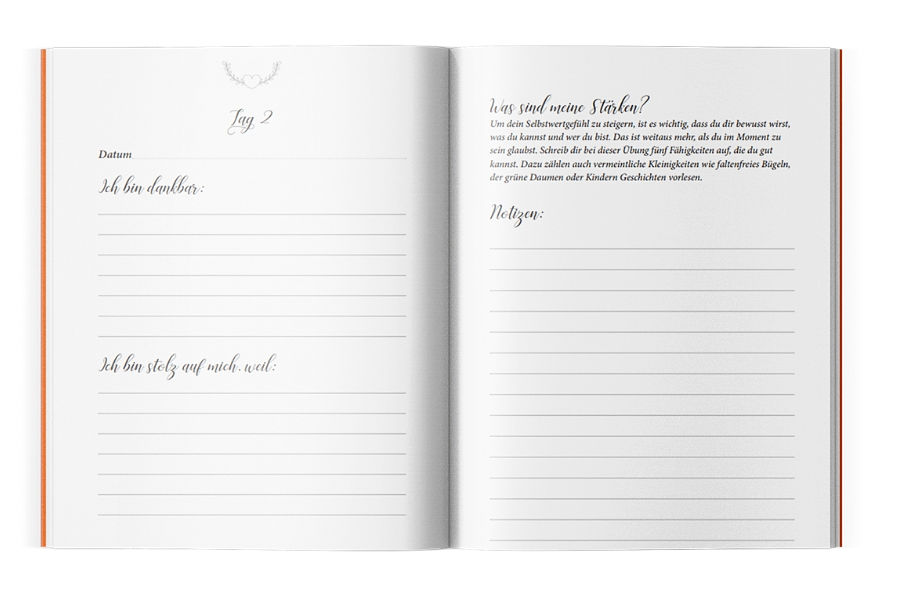 Tag 2
Datum
Ich bin dankbar:
Ich bin stolz auf mich, weil:
Was sind meine Stärken?
Um dein Selbstwertgefühl zu steigern, ist es wichtig, dass du dir bewusst wirst,
was du kannst und wer du bist. Das ist weitaus mehr, als du im Moment zu
sein glaubst. Schreib dir bei dieser Übung fünf Fähigkeiten auf, die du gut
kannst. Dazu zählen auch vermeintliche Kleinigkeiten wie faltenfreies Bügeln,
der grüne Daumen oder Kindern Geschichten vorlesen.
Notizen: